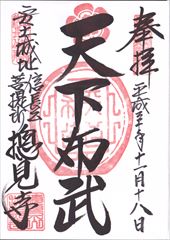 奉拝
平成三十年十一月十八日
天下布武
安土城址
信長公
菩提所
摠見寺